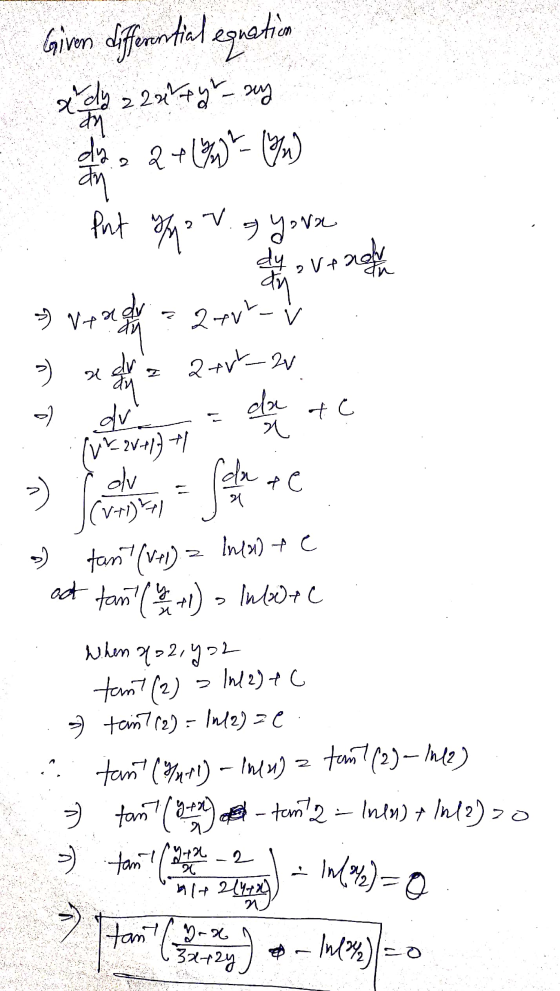 Given differential equation
x² dy/dx = 2x² + y² - xy
dy/dx = 2 + (y/x)² - (y/x)
Put y/x = v ⇒ y = vx
dy/dx = v + x dv/dx
⇒ v + x dv/dx = 2 + v² - v
⇒ x dv/dx = 2 + v² - 2v
⇒ dv/((v² - 2v + 1) + 1) = dx/x + C
⇒ ∫ dv/((v+1)² + 1) = ∫ dx/x + C
⇒ tan⁻¹(v+1) = ln(x) + C
tan⁻¹(y/x + 1) = ln(x) + C
When x = 2, y = 2
tan⁻¹(2) = ln(2) + C
⇒ tan⁻¹(2) - ln(2) = C
∴ tan⁻¹(y/x + 1) - ln(x) = tan⁻¹(2) - ln(2)
⇒ tan⁻¹((y+x)/x) - tan⁻¹2 - ln(x) + ln(2) = 0
⇒ tan⁻¹(((y+x)/x - 2)/(1 + 2(y+x)/x)) - ln(x/2) = 0
⇒ tan⁻¹((y-x)/(3x+2y)) - ln(x/2) = 0